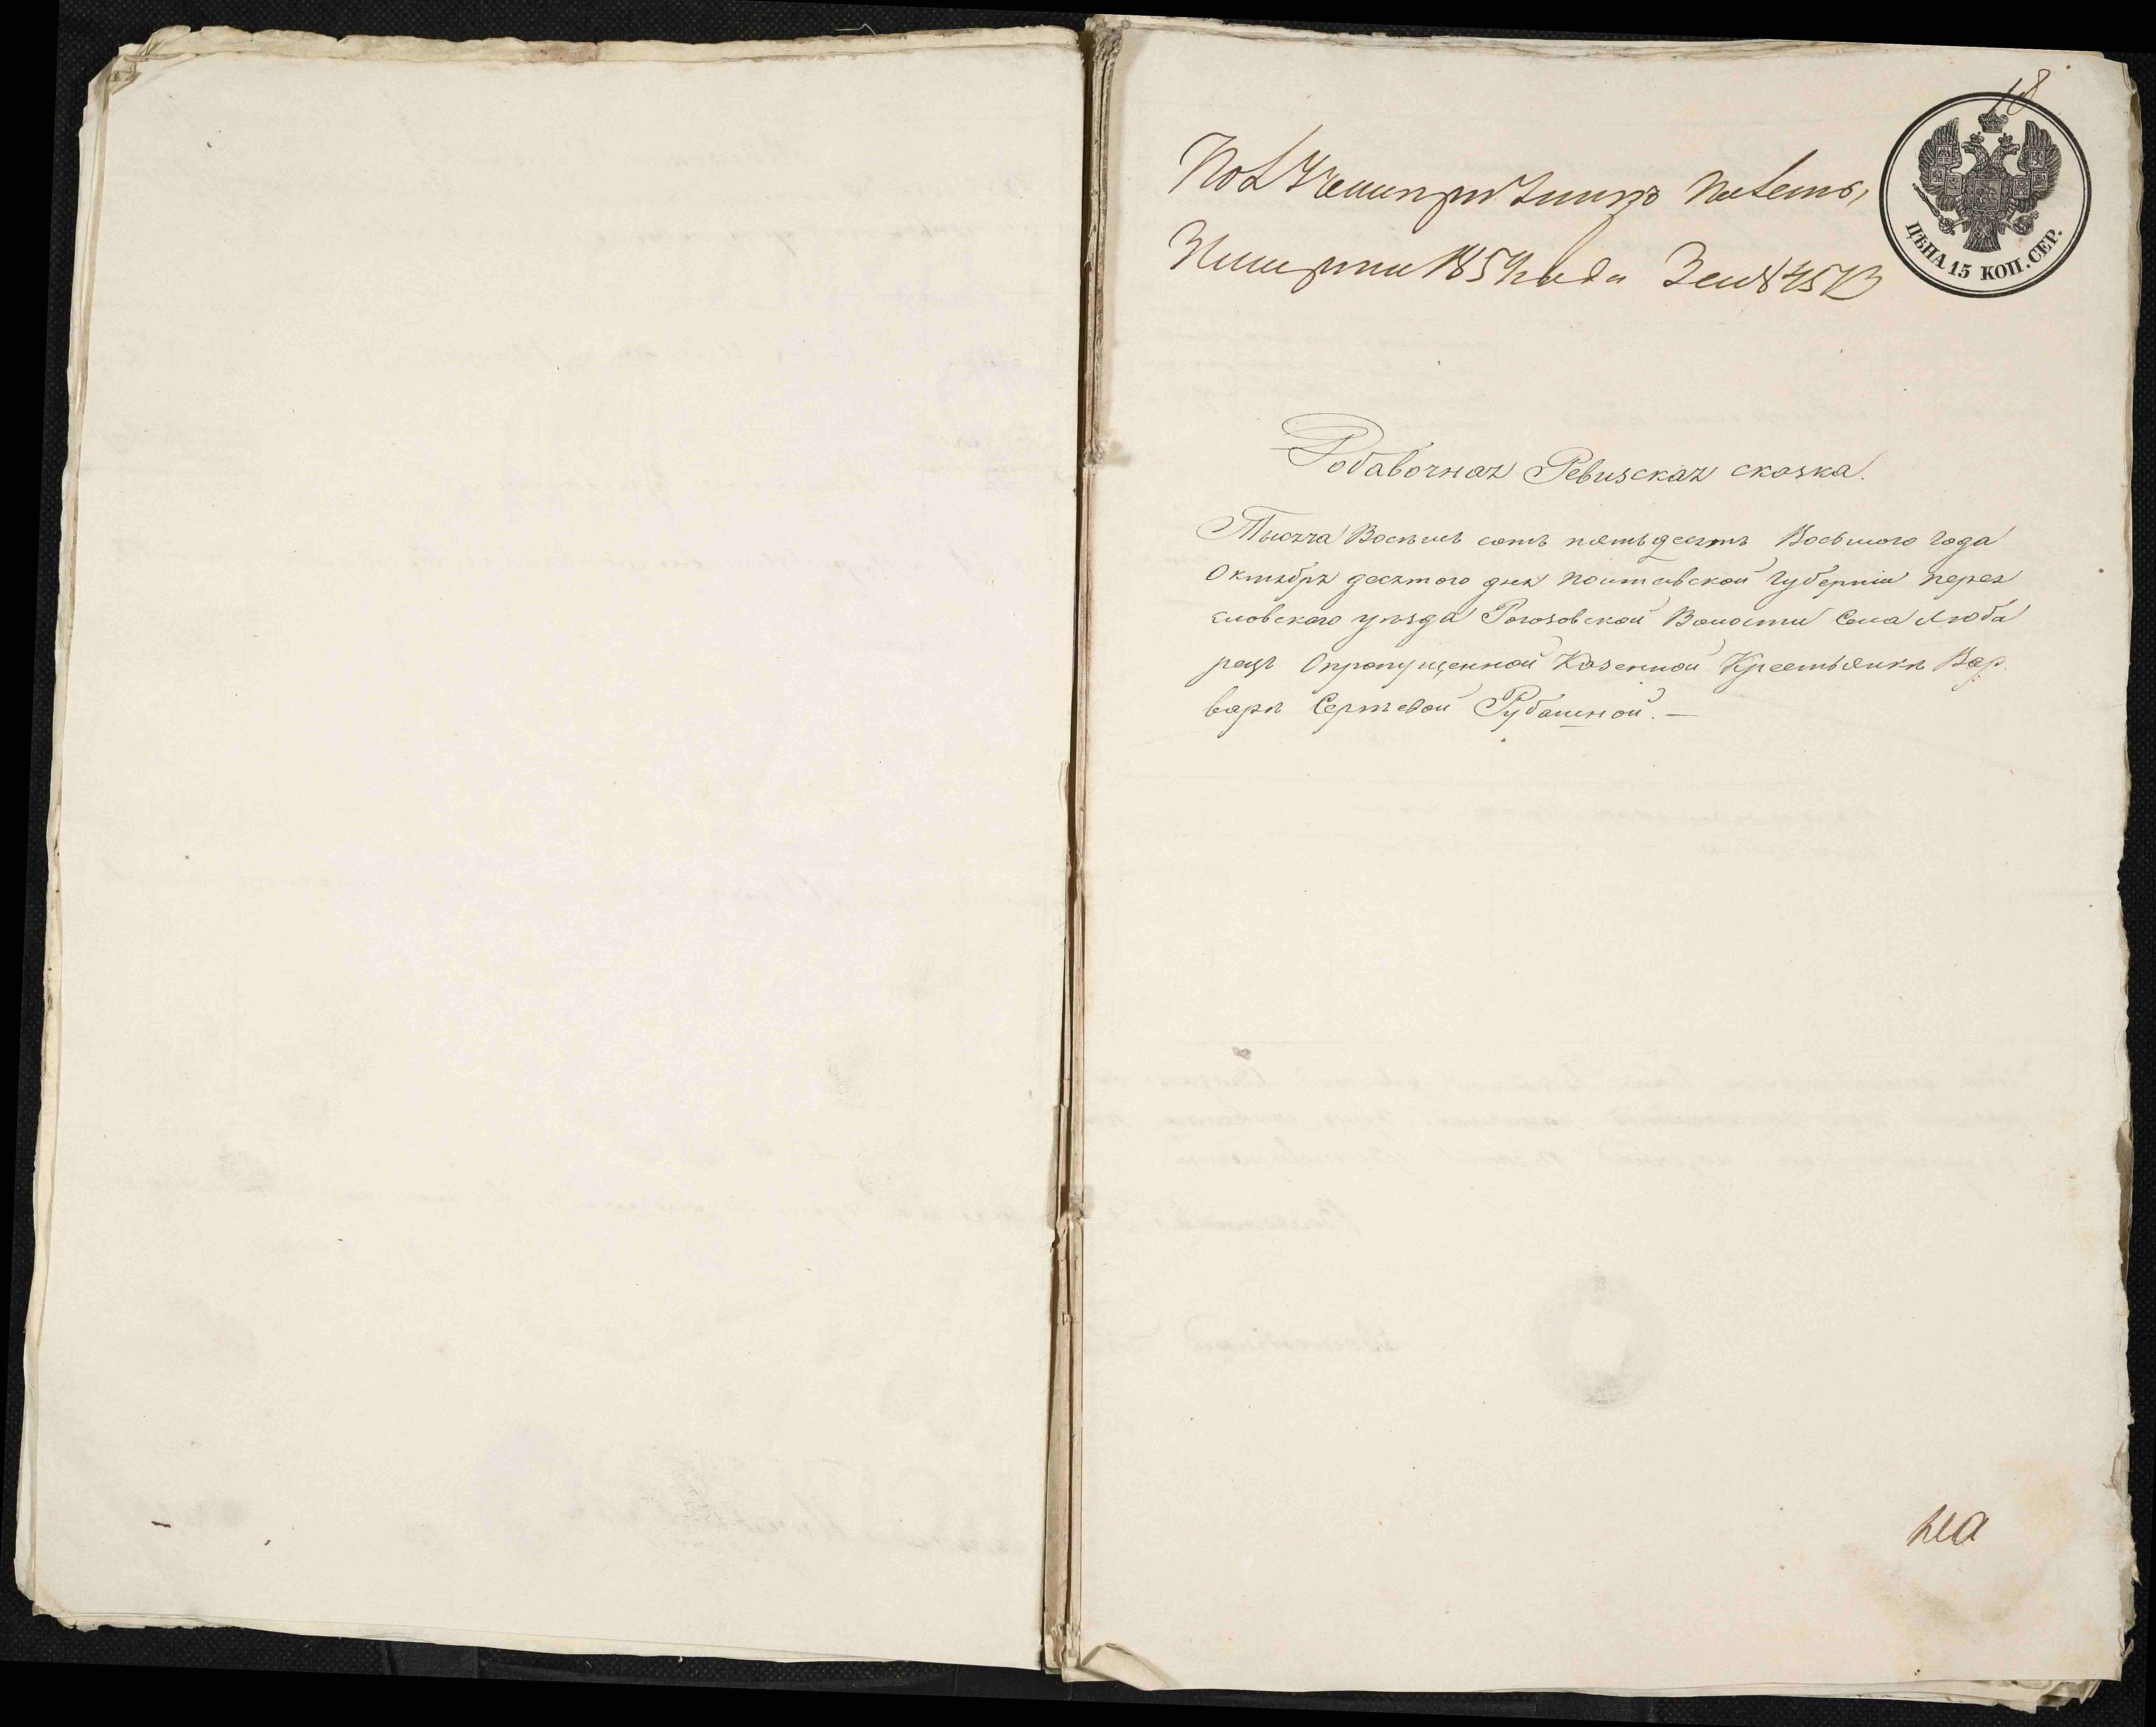 18
ЦѢНА 15 КОП. СЕР.
1859 года
Добавочная Ревизская сказка.
Тысяча Восемь сотъ пятьдесятъ Восьмого года
Октября десятого дня Полтавской Губерніи перея
словского уѣзда Рогозовской Волости Села Люба
рецъ О пропущенной Казенной Крестьянкѣ Вар
варѣ Сергѣевой Рубашной. —
на